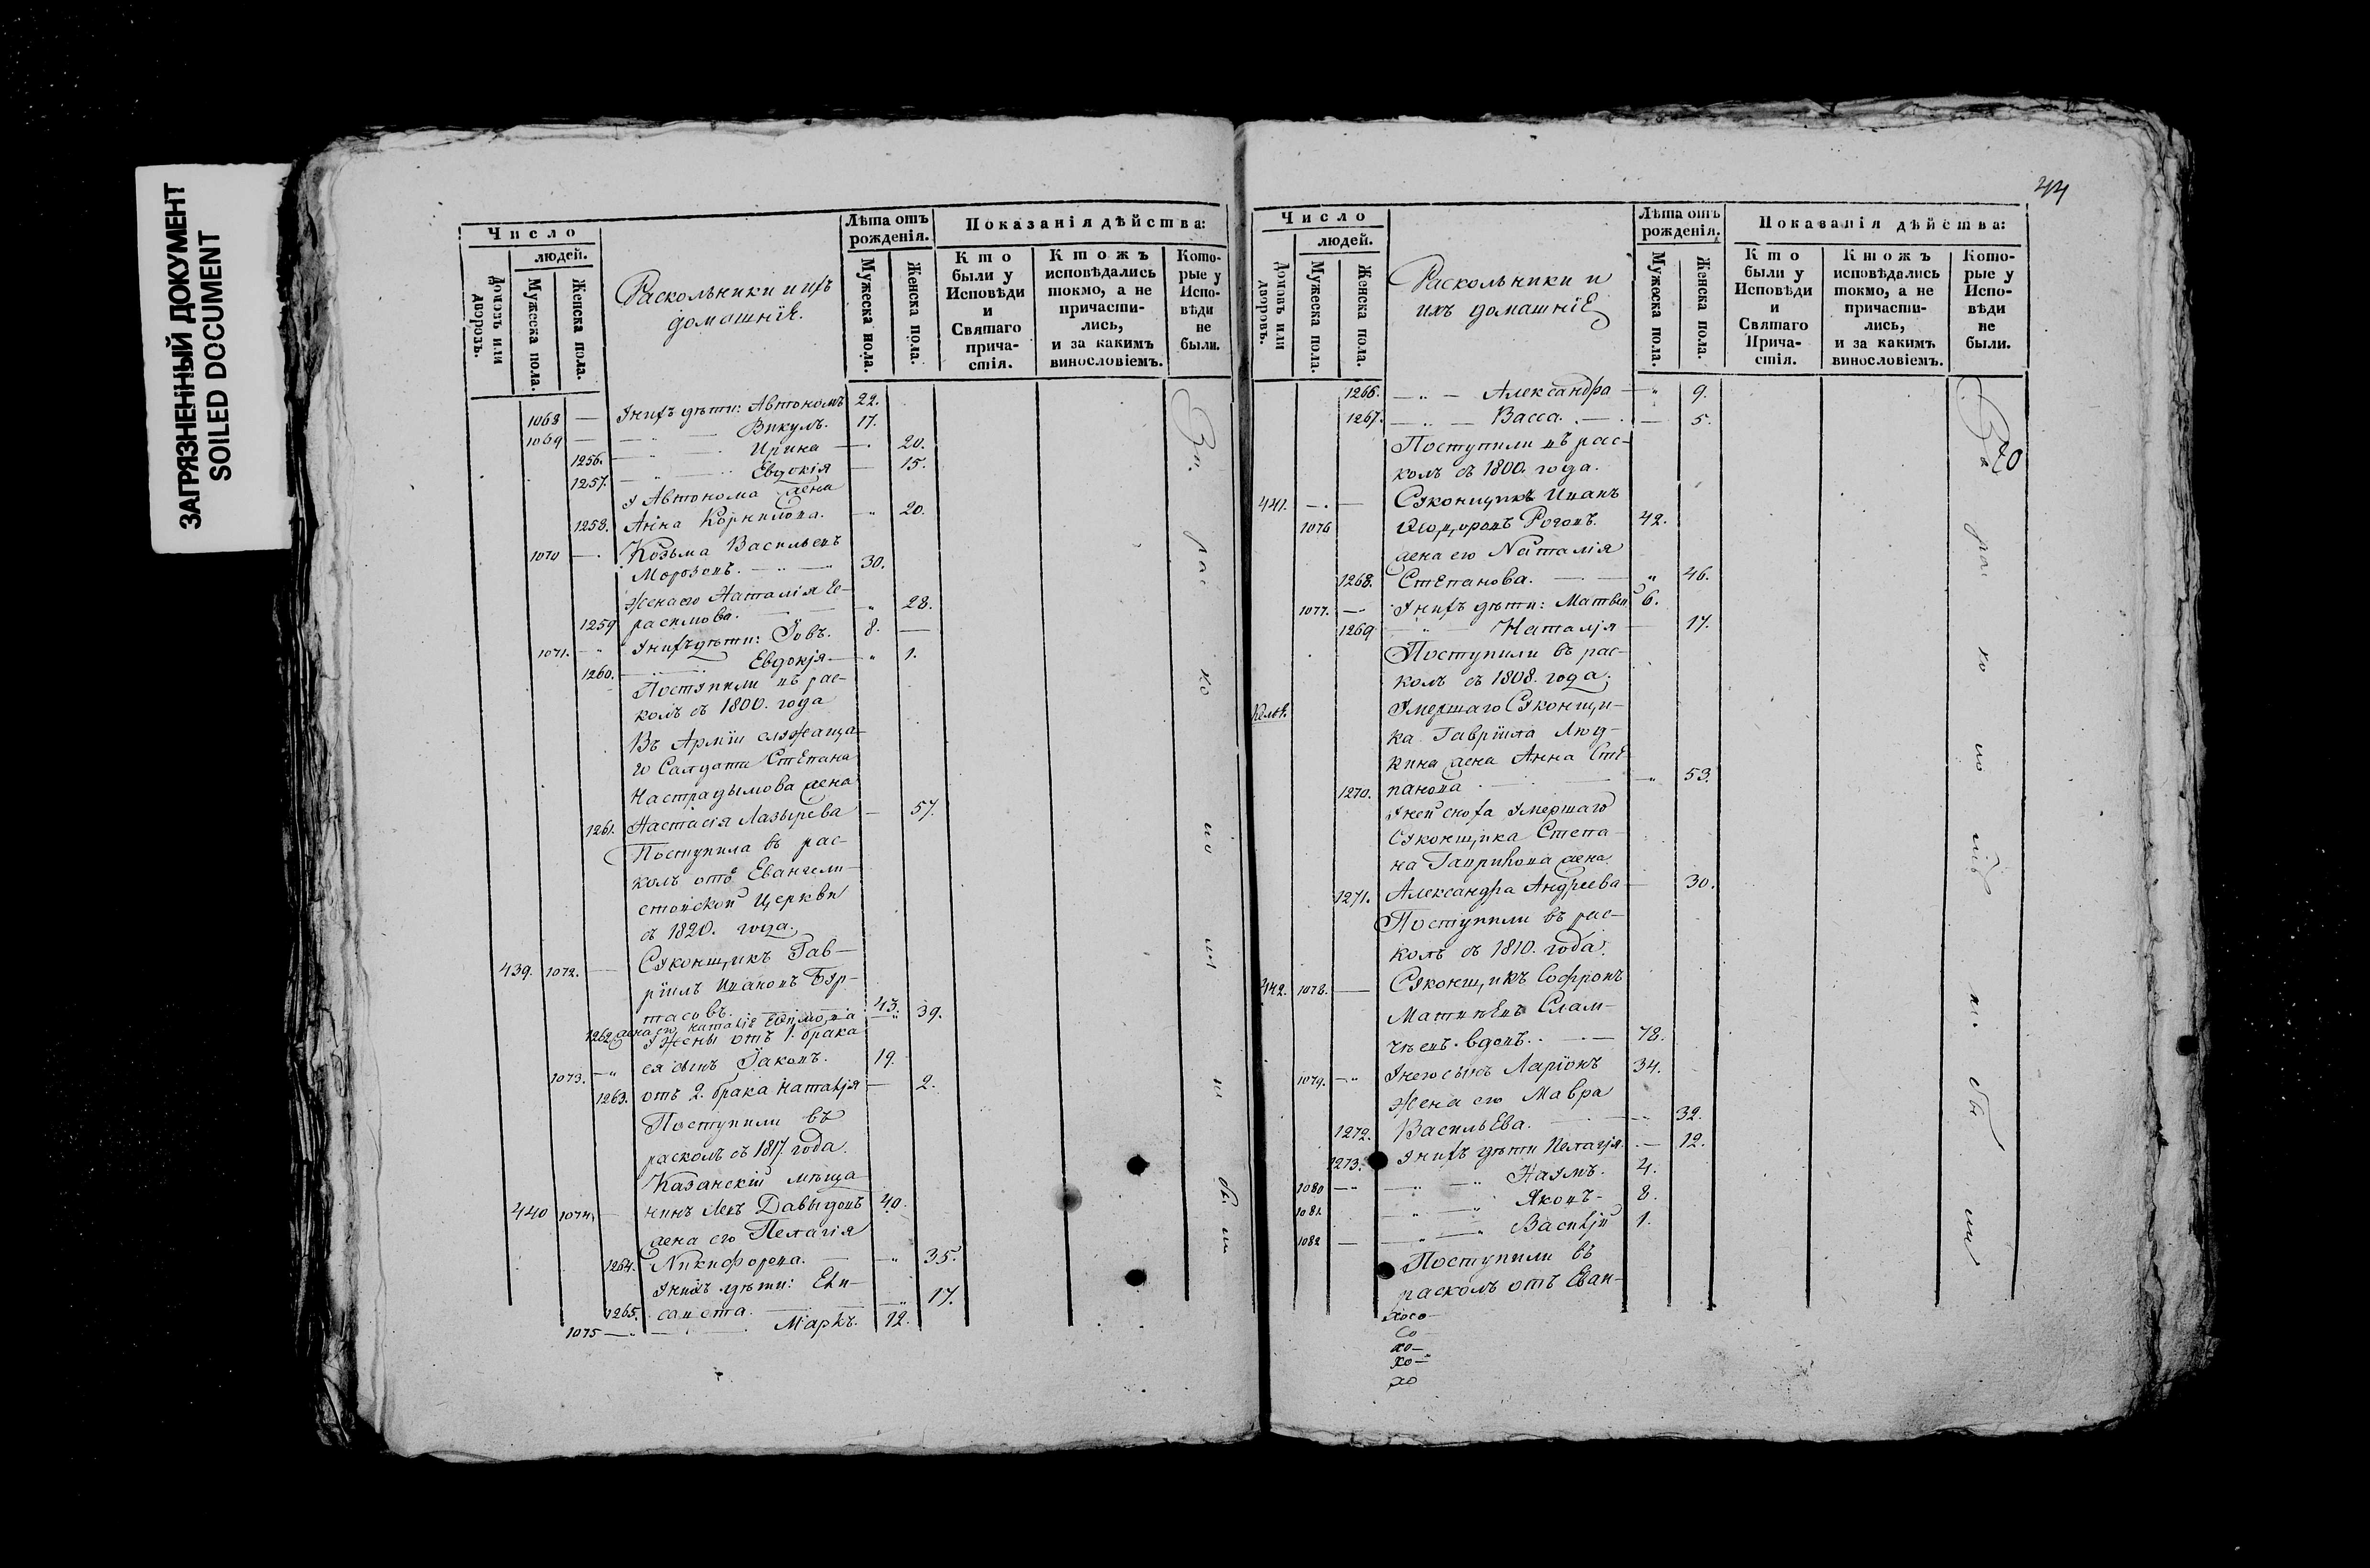 ЗАГРЯЗНЕННЫЙ ДОКУМЕНТ
SOILED DOCUMENT
Число
людей.
Домовъ или дворовъ.
Мужеска пола.
Женска пола.
Раскольники и ихъ
домашнїе.
Лѣта отъ рожденія.
Мужеска пола.
Женска пола.
Показанія дѣйства:
Кто были у Исповѣди и Святаго причастія.
Ктожъ исповѣдались токмо, а не причастились, и за какимъ винословіемъ.
Которые у Исповѣди не были.
1068 — У нихъ дѣти: Автономъ 22.
1069 — Викулъ. 17.
1256. Ирина — 20.
1257. Евдокія — 15.
У Автонома жена
1258. Анна Корнилова. — 20.
1070 — Козьма Васильевъ
Морозовъ. — 30.
Жена его Наталія Ге-
1259 расимова. — 28.
1071. У нихъ дѣти: Іовъ. 8. —
1260. Евдокія — 1.
Поступили въ рас-
колъ съ 1800. года
Въ Арміи служаща-
го Салдата Степана
Настрадымова жена
1261. Настасія Лазырева — 57.
Поступила въ рас-
колъ отъ Евангели-
стовской Церкви
съ 1820. года.
439. 1072. — Суконщикъ Гав-
ріилъ Ивановъ Бур-
тасовъ. 43.
1262. жена его Наталіе Ефимова — 39.
У Жены отъ 1. брака
1073. — ея сынъ Іаковъ. 19.
1263. отъ 2. брака Наталія — 2.
Поступили въ
расколъ съ 1817. года.
Казанскій мѣща-
440 1074. — нинъ Левъ Давыдовъ 40.
жена его Пелагія
1264. Никифорова. — 35.
У нихъ дѣти: Ели-
1265. савета. — 17.
1075 — Маркъ. 12.
44
Число
людей.
Домовъ или дворовъ.
Мужеска пола.
Женска пола.
Раскольники и
ихъ домашнїе
Лѣта отъ рожденія.
Мужеска пола.
Женска пола.
Показанія дѣйства:
Кто были у Исповѣди и Святаго Причастія.
Ктожъ исповѣдались токмо, а не причастились, и за какимъ винословіемъ.
Которые у Исповѣди не были.
1266. — Александра — 9.
1267. — Васса. — 5.
Поступили въ рас-
колъ съ 1800. года.
441. — Суконщикъ Иванъ
1076 Ѳеодоровъ Роговъ. 42.
жена его Наталія
1268. Степанова. — 46.
1077. — У нихъ дѣти: Матвей 6.
1269 Наталія — 17.
Поступили въ рас-
колъ съ 1808. года.
Келья.
Умершаго Суконщи-
ка Гавріила Люд-
кина жена Анна Сте-
1270. панова — 53.
У ней сноха умершаго
Суконщика Степа-
на Гаврилова жена
1271. Александра Андреева — 30.
Поступили въ рас-
колъ съ 1810. года.
442. 1078. — Суконщикъ Софронъ
Матвѣевъ Слам-
вдовъ. — 78.
1079. — У него сынъ Ларіонъ 34.
Жена его Мавра
1272. Васильева. — 32.
1273. У нихъ дѣти Пелагія. — 12.
1080 — Наумъ. 4.
1081 Яковъ — 8.
1082 — Василій 1.
Поступили въ
расколъ отъ Еван-